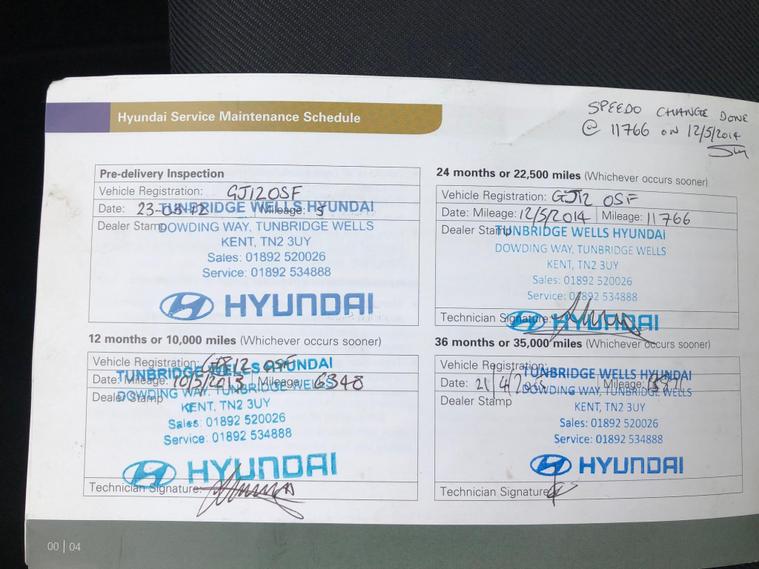 Hyundai Service Maintenance Schedule
SPEEDO CHANGE DONE
@ 11766 ON 12/5/2014
Pre-delivery Inspection
Vehicle Registration: GJ12OSF
Date: 23-05-12 Mileage: 5
TUNBRIDGE WELLS HYUNDAI
Dealer Stamp
DOWDING WAY, TUNBRIDGE WELLS
KENT, TN2 3UY
Sales: 01892 520026
Service: 01892 534888
HYUNDAI
12 months or 10,000 miles (Whichever occurs sooner)
Vehicle Registration: OSF
TUNBRIDGE WELLS HYUNDAI
Date: Mileage: 10/5/2013 Mileage: 6348
DOWDING WAY, TUNBRIDGE WELLS
Dealer Stamp
KENT, TN2 3UY
Sales: 01892 520026
Service: 01892 534888
HYUNDAI
Technician Signature:
24 months or 22,500 miles (Whichever occurs sooner)
Vehicle Registration: GJ12 OSF
Date: Mileage: 12/5/2014 Mileage: 11766
Dealer Stamp
TUNBRIDGE WELLS HYUNDAI
DOWDING WAY, TUNBRIDGE WELLS
KENT, TN2 3UY
Sales: 01892 520026
Service: 01892 534888
Technician Signature:
HYUNDAI
36 months or 35,000 miles (Whichever occurs sooner)
Vehicle Registration:
TUNBRIDGE WELLS HYUNDAI
Date: 21/4/2015 Mileage:
DOWDING WAY, TUNBRIDGE WELLS
Dealer Stamp
KENT, TN2 3UY
Sales: 01892 520026
Service: 01892 534888
HYUNDAI
Technician Signature
00 | 04